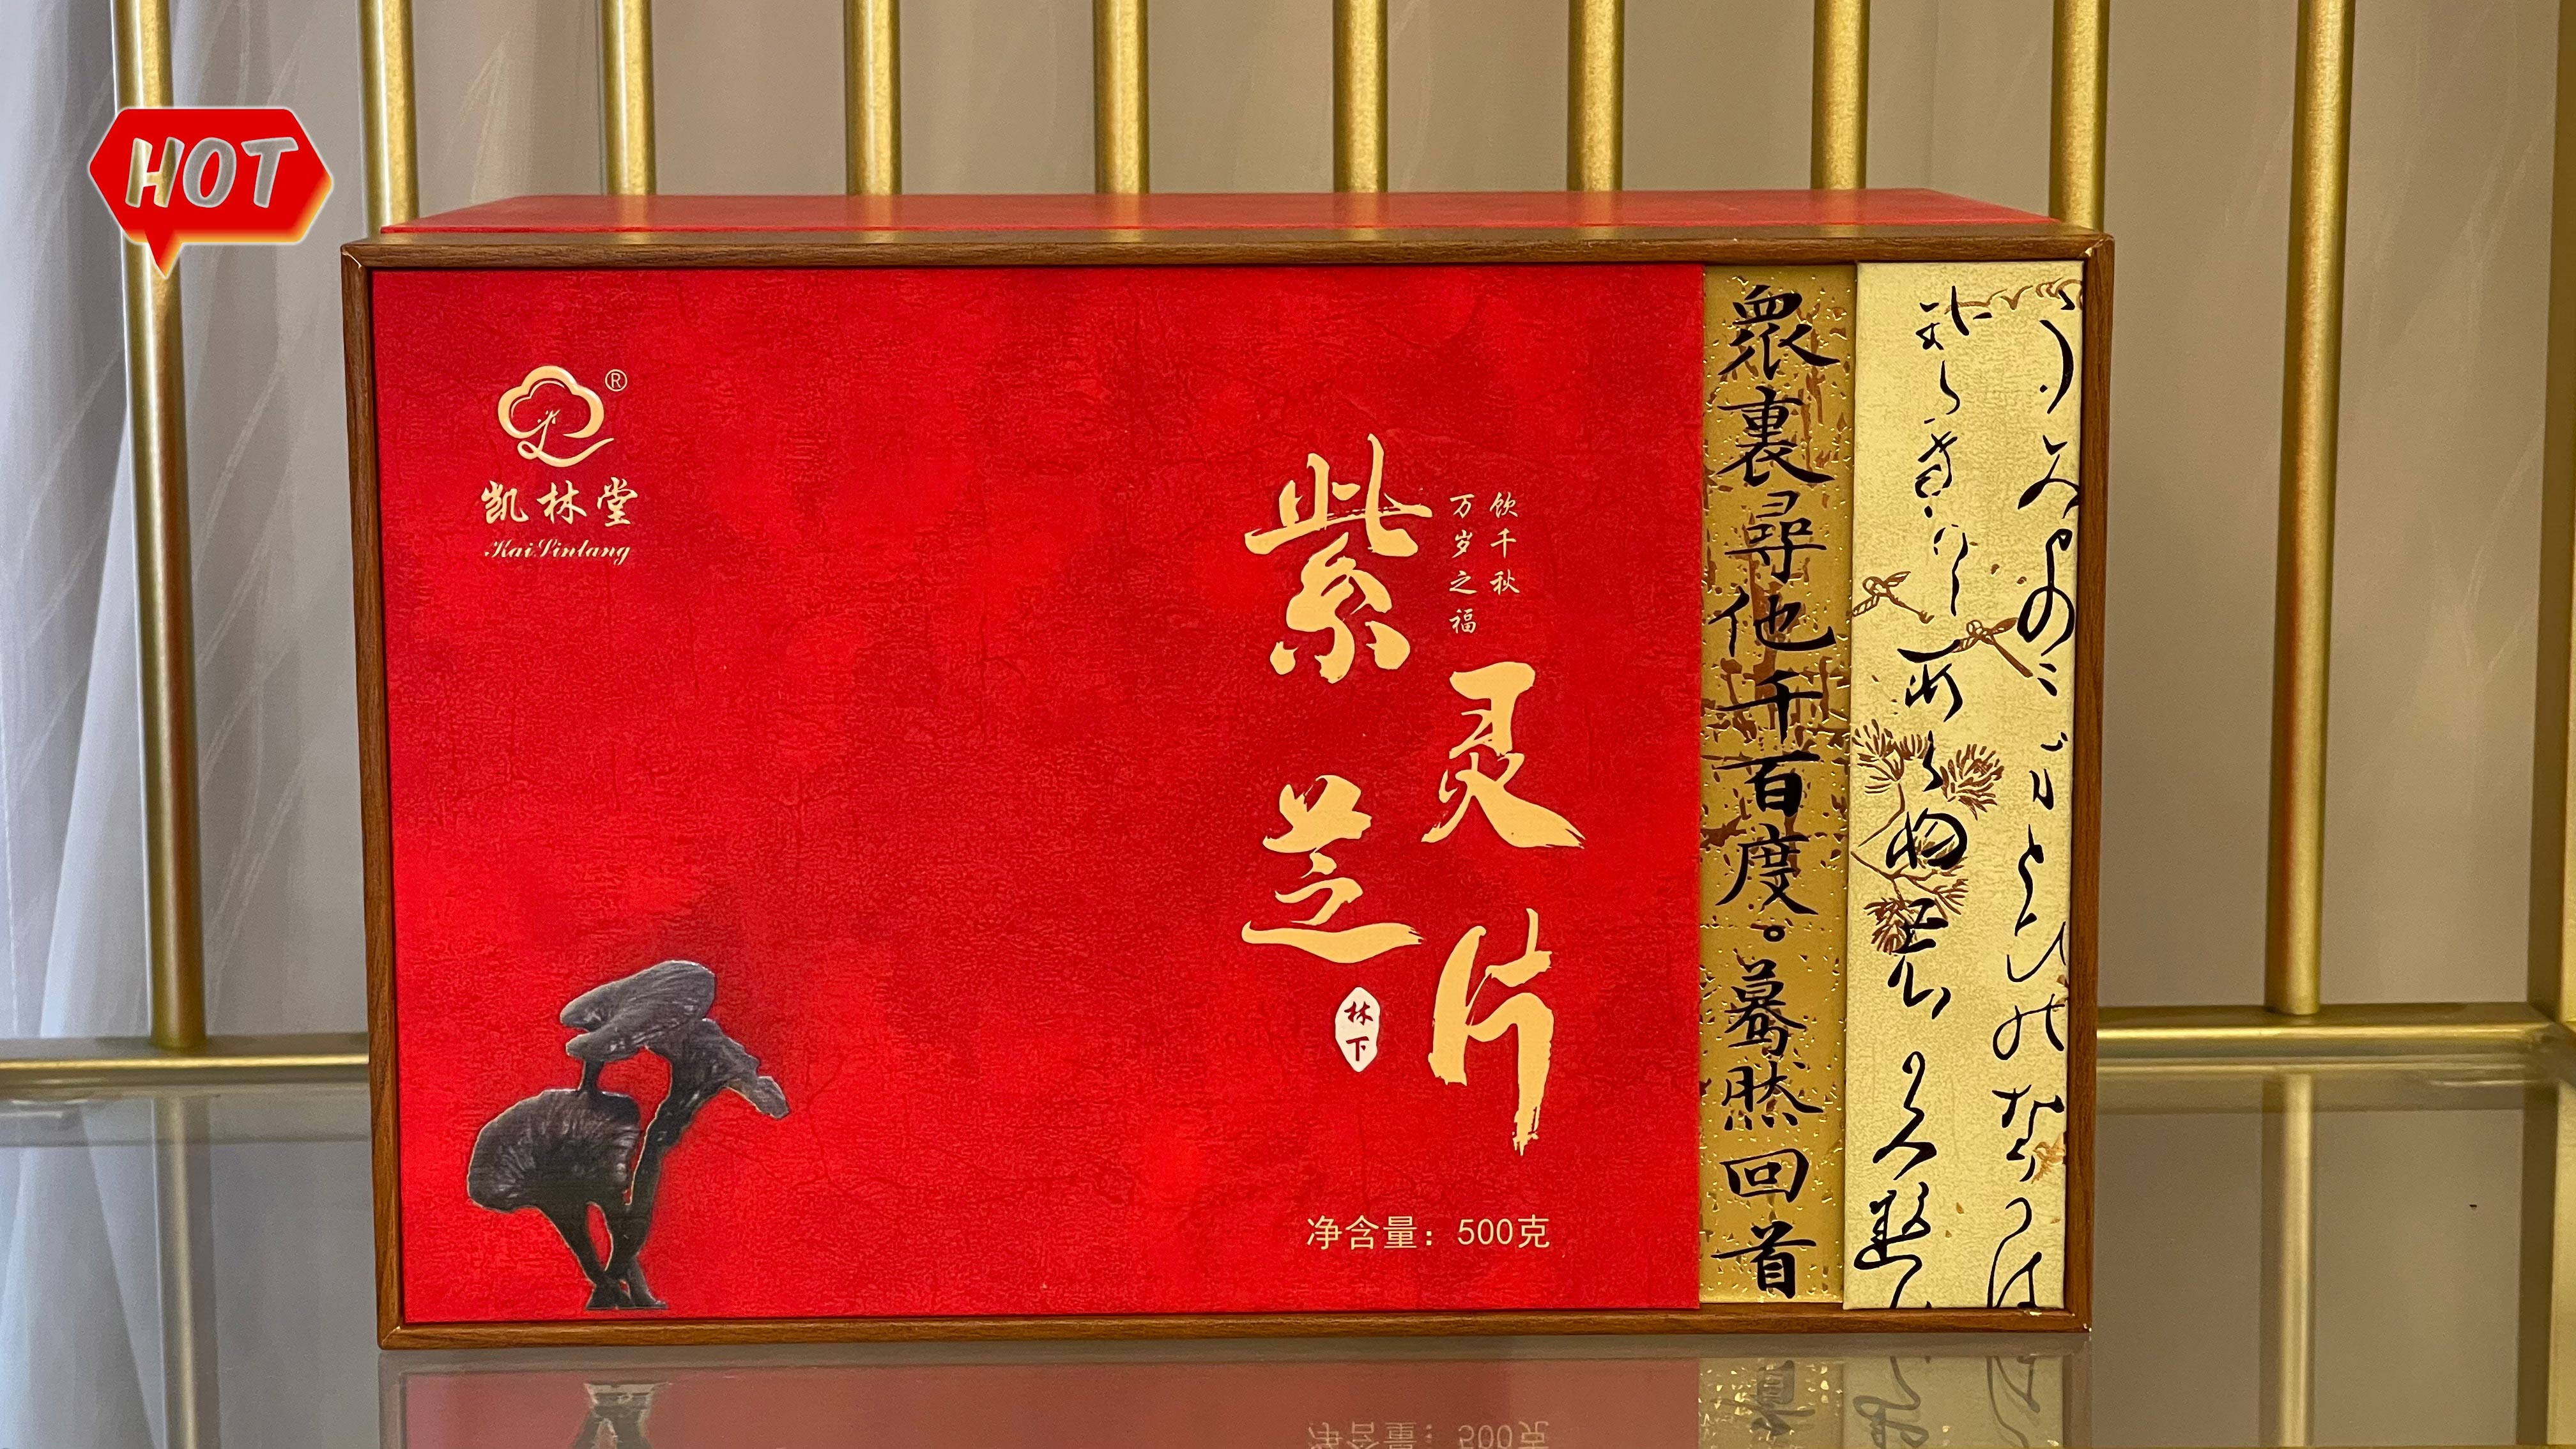 HOT
®
凯林堂
KaiLintang
紫灵芝片
饮千秋
万岁之福
林下
净含量：500克
眾裏尋他千百度。驀然回首